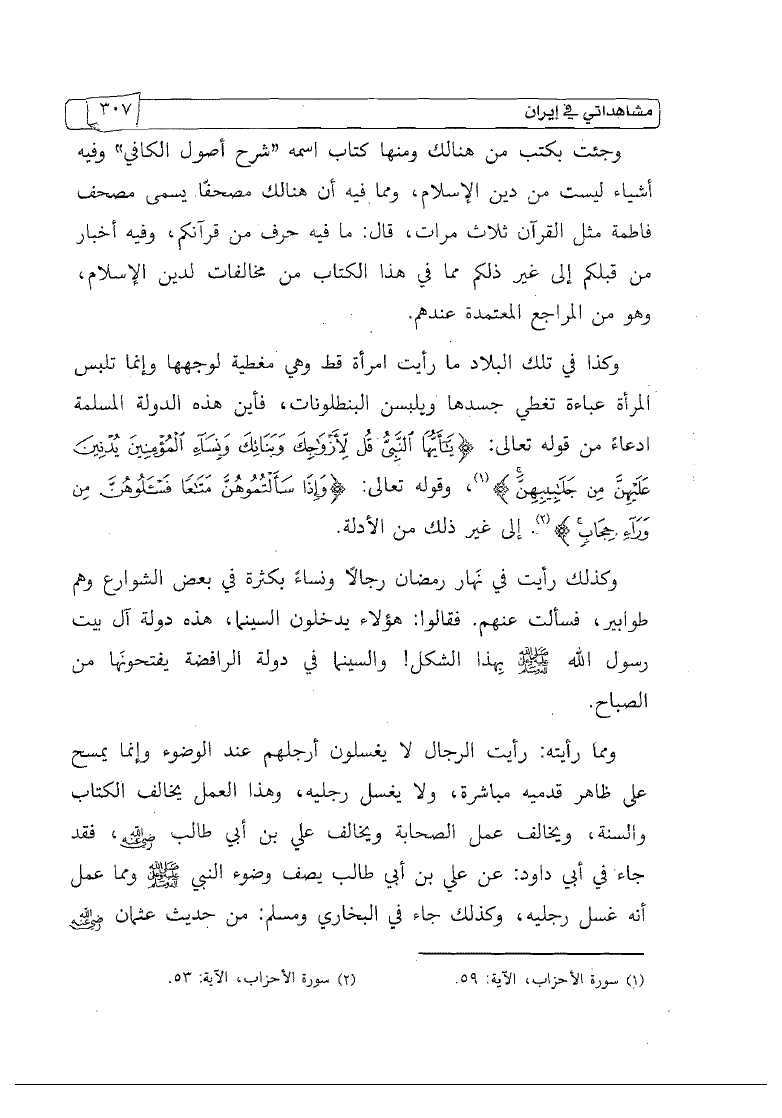 مشاهداتي في إيران
٣٠٧
وجئت بكتب من هنالك ومنها كتاب اسمه «شرح أصول الكافي» وفيه
أشياء ليست من دين الإسلام، ومما فيه أن هنالك مصحفًا يسمى مصحف
فاطمة مثل القرآن ثلاث مرات، قال: ما فيه حرف من قرآنكم، وفيه أخبار
من قبلكم إلى غير ذلكم مما في هذا الكتاب من مخالفات لدين الإسلام،
وهو من المراجع المعتمدة عندهم.
وكذا في تلك البلاد ما رأيت امرأة قط وهي مغطية لوجهها وإنما تلبس
المرأة عباءة تغطي جسدها ويلبسن البنطلونات، فأين هذه الدولة المسلمة
ادعاءً من قوله تعالى: ﴿يَٰٓأَيُّهَا ٱلنَّبِيُّ قُل لِّأَزْوَٰجِكَ وَبَنَاتِكَ وَنِسَآءِ ٱلْمُؤْمِنِينَ يُدْنِينَ
عَلَيْهِنَّ مِن جَلَٰبِيبِهِنَّۚ﴾(١)، وقوله تعالى: ﴿وَإِذَا سَأَلْتُمُوهُنَّ مَتَٰعًا فَسْـَٔلُوهُنَّ مِن
وَرَآءِ حِجَابٍۚ﴾(٢). إلى غير ذلك من الأدلة.
وكذلك رأيت في نهار رمضان رجالًا ونساءً بكثرة في بعض الشوارع وهم
طوابير، فسألت عنهم. فقالوا: هؤلاء يدخلون السينما، هذه دولة آل بيت
رسول الله ﷺ بهذا الشكل! والسينما في دولة الرافضة يفتحونَها من
الصباح.
ومما رأيته: رأيت الرجال لا يغسلون أرجلهم عند الوضوء وإنما يمسح
على ظاهر قدميه مباشرة، ولا يغسل رجليه، وهذا العمل يخالف الكتاب
والسنة، ويخالف عمل الصحابة ويخالف علي بن أبي طالب رضي الله عنه، فقد
جاء في أبي داود: عن علي بن أبي طالب يصف وضوء النبي ﷺ ومما عمل
أنه غسل رجليه، وكذلك جاء في البخاري ومسلم: من حديث عثمان رضي الله عنه
(١) سورة الأحزاب، الآية: ٥٩. (٢) سورة الأحزاب، الآية: ٥٣.